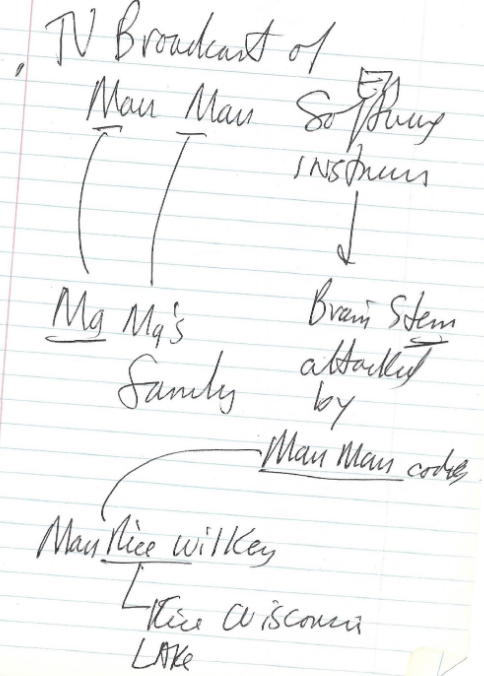 TV Broadcast of
Man Man Software
instruns
Mg Mg's
family
Brain Stem
attacked
by
Man Man codes
Man Rice Wilkey
Rice Wisconsin
LAKe